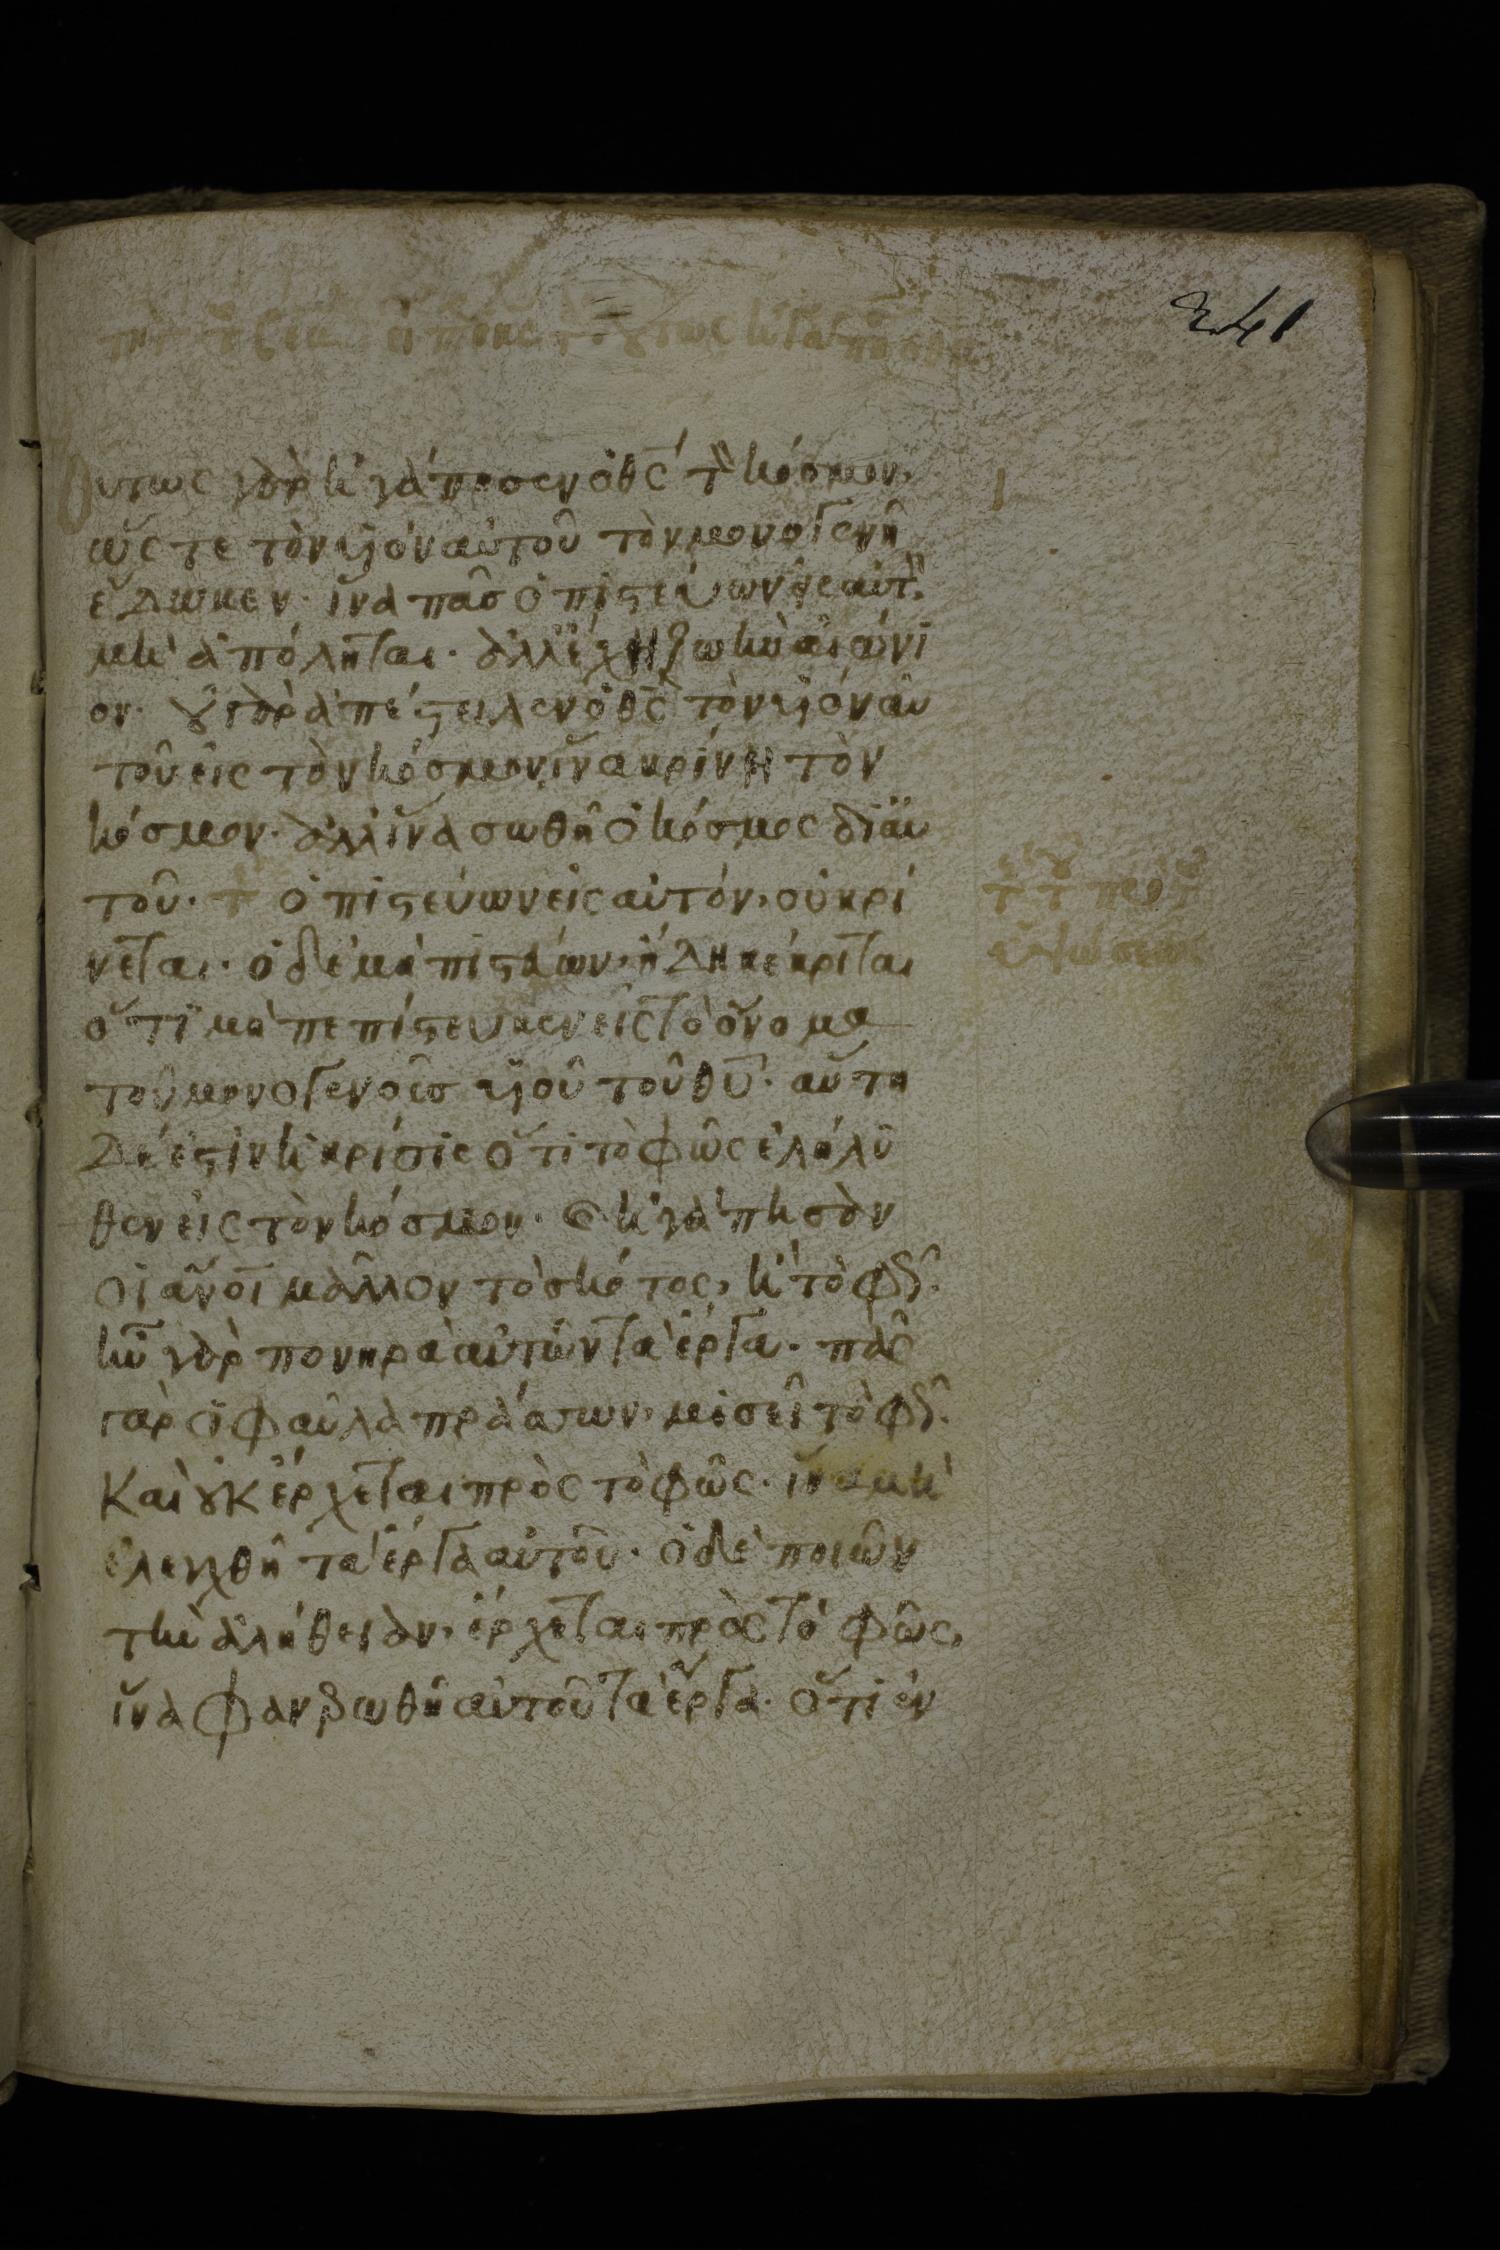 241
Ουτως γὰρ κ ἠγάπησεν ὁ θς τὸν κόσμον,
ὥς τε τὸν υἱὸν αὐτοῦ τὸν μονογενῆ
ἔδωκεν· ἵνα πᾶσ ὁ πιστεύων εἰς αὐτὸν
μὴ ἀπόληται· ἀλλ ἔχῃ ζωὴν αἰώνι
ον· οὐ γὰρ ἀπέστειλεν ὁ θς τὸν υἱὸν αὐ
τοῦ εἰς τὸν κόσμον ἵνα κρίνῃ τὸν
κόσμον· ἀλλ ἵνα σωθῆ ὁ κόσμος δι αὐ
τοῦ· ὁ πιστεύων εἰς αὐτόν, οὐ κρί
νεται· ὁ δὲ μὴ πιστεύων, ἤδη κέκριται
ὅτι μὴ πεπίστευκεν εἰς τὸ ὄνομα
τοῦ μονογενοῦσ υἱοῦ τοῦ θυ· αὕτη
δέ ἐστιν ἡ κρίσις ὅτι τὸ φῶς ἐλήλυ
θεν εἰς τὸν κόσμον· κ ἠγάπησαν
οἱ ἀνοι μᾶλλον τὸ σκότος, ἢ τὸ φῶς·
ἦν γὰρ πονηρὰ αὐτῶν τὰ ἔργα· πᾶς
γὰρ ὁ φαῦλα πράσσων, μισεῖ τὸ φῶς·
Καὶ οὐκ ἔρχεται πρὸς τὸ φῶς· ἵνα μὴ
ἐλεγχθῆ τὰ ἔργα αὐτοῦ· ὁ δὲ ποιῶν
τὴν ἀλήθειαν, ἔρχεται πρὸς τὸ φῶς,
ἵνα φανερωθῆ αὐτοῦ τὰ ἔργα· ὅτι ἐν